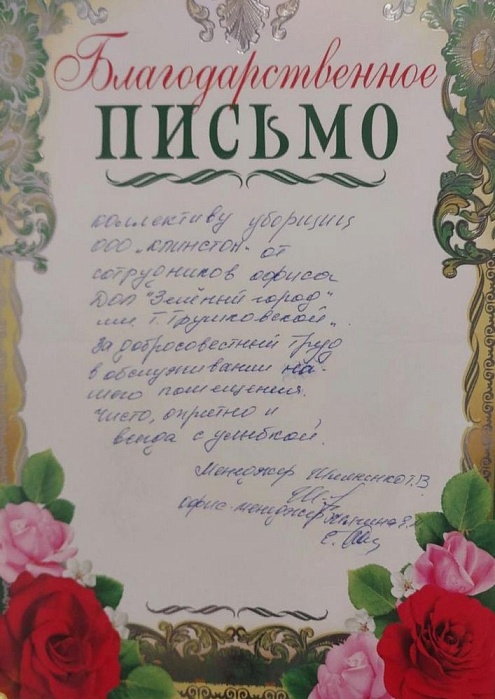 Благодарственное
ПИСЬМО
коллективу уборщиц
ООО „Клинстон" от
сотрудников офиса
ДОЛ "Зелёный город"
им. Т. Трушковской„
За добросовестный труд
в обслуживании на-
шего помещения.
Чисто, опрятно и
всегда с улыбкой.
Менеджер
офис-менеджер